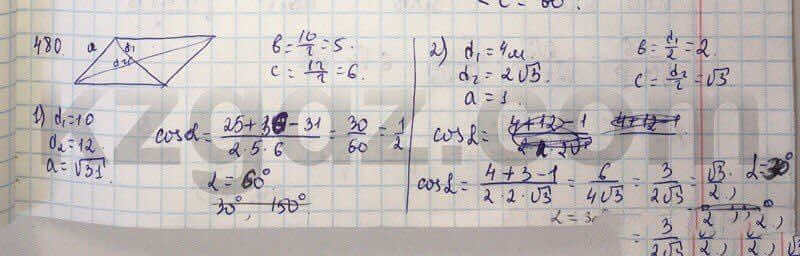 480.
a
d₁
d₂
в = 10/2 = 5.
c = 12/2 = 6.
1) d₁ = 10
d₂ = 12
a = √31
cos α = (25 + 36 − 31)/(2 · 5 · 6) = 30/60 = 1/2
α = 60°
30°, 150°
2) d₁ = 4м
d₂ = 2√3
a = 1.
в = d₁/2 = 2.
c = d₂/2 = √3
cos α =
cos α = (4 + 3 − 1)/(2 · 2 · √3) = 6/(4√3) = 3/(2√3) = √3/2, α = 30°
= 3/(2√3)
kzgdz.com